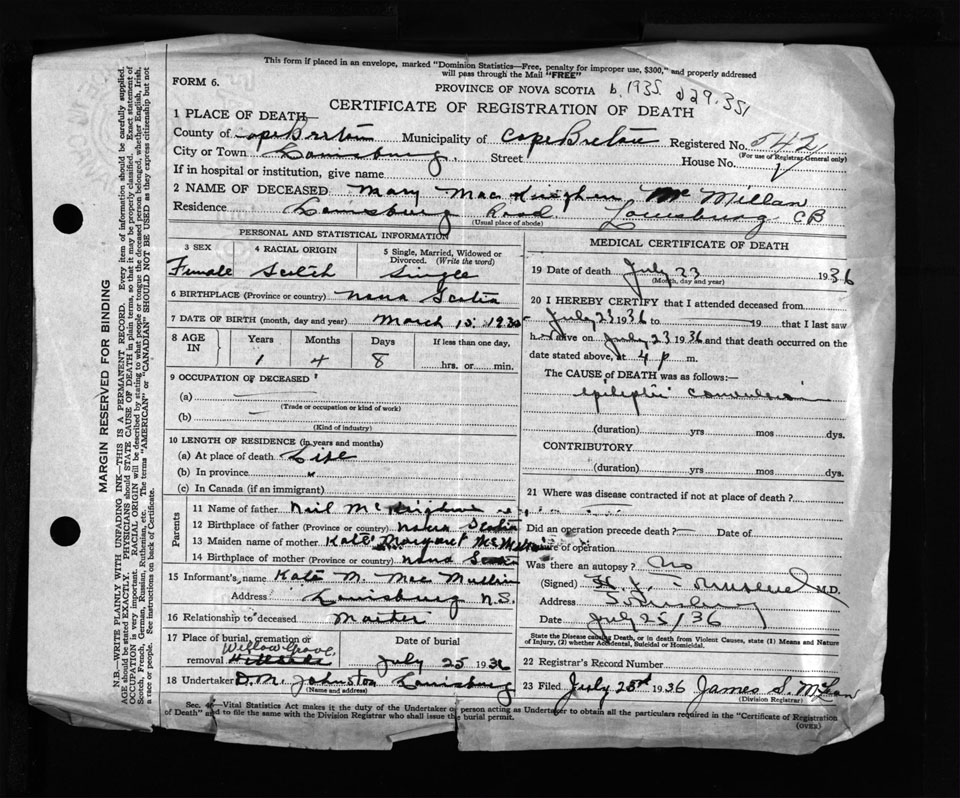 This form if placed in an envelope, marked "Dominion Statistics—Free, penalty for improper use, $300," and properly addressed
will pass through the Mail "FREE"
FORM 6.
PROVINCE OF NOVA SCOTIA b. 1935 29.351
CERTIFICATE OF REGISTRATION OF DEATH
1 PLACE OF DEATH—
County of Cape Breton Municipality of Cape Breton Registered No. 542
(For use of Registrar General only)
City or Town Louisburg, Street House No.
If in hospital or institution, give name
2 NAME OF DECEASED Mary Mac Mc Millan
Residence Louisburg Road Louisburg CB
(Usual place of abode)
PERSONAL AND STATISTICAL INFORMATION
3 SEX 4 RACIAL ORIGIN 5 Single, Married, Widowed or
Divorced. (Write the word)
Female Scotch Single
6 BIRTHPLACE (Province or country) Nova Scotia
7 DATE OF BIRTH (month, day and year) March 15. 193
8 AGE IN Years Months Days If less than one day,
1 4 8 hrs. or min.
9 OCCUPATION OF DECEASED
(a)
(Trade or occupation or kind of work)
(b)
(Kind of industry)
10 LENGTH OF RESIDENCE (in years and months)
(a) At place of death Life
(b) In province "
(c) In Canada (if an immigrant)
Parents
11 Name of father Neil Mc
12 Birthplace of father (Province or country) Nova Scotia
13 Maiden name of mother Kate Margaret
14 Birthplace of mother (Province or country) Nova Scotia
15 Informant's name Kate M. Mac Mullin
Address Louisburg N.S.
16 Relationship to deceased
17 Place of burial, cremation or Date of burial
removal Willow Grove July 25 1936
18 Undertaker D.M. Johnston Louisburg
(Name and address)
MEDICAL CERTIFICATE OF DEATH
19 Date of death July 23 1936
(Month, day and year)
20 I HEREBY CERTIFY that I attended deceased from
July 23 1936 to 19 that I last saw
h alive on July 23 1936 and that death occurred on the
date stated above, at 4 p m.
The CAUSE of DEATH was as follows:—
epileptic convulsion
(duration) yrs mos dys.
CONTRIBUTORY
(duration) yrs mos dys.
21 Where was disease contracted if not at place of death?
Did an operation precede death? Date of
of operation
Was there an autopsy? No
(Signed) M.D.
Address Louisburg
Date July 25/36
State the Disease causing Death, or in death from Violent Causes, state (1) Means and Nature
of Injury, (2) whether Accidental, Suicidal or Homicidal.
22 Registrar's Record Number
23 Filed July 25th 1936 James S. McLean
(Division Registrar)
Sec. 4—Vital Statistics Act makes it the duty of the Undertaker or person acting as Undertaker to obtain all the particulars required in the "Certificate of Registration
of Death" and to file the same with the Division Registrar who shall issue the burial permit. (OVER)
MARGIN RESERVED FOR BINDING
N.B.—WRITE PLAINLY WITH UNFADING INK—THIS IS A PERMANENT RECORD. Every item of information should be carefully supplied.
AGE should be stated EXACTLY. PHYSICIANS should STATE CAUSE OF DEATH in plain terms, so that it may be properly classified. Exact statement of
OCCUPATION is very important. RACIAL ORIGIN will be described by stating to what people or tongue the deceased person belonged, whether English, Irish,
Scotch, French, German, Russian, Ruthenian, etc. The terms "AMERICAN" or "CANADIAN" SHOULD NOT BE USED as they express citizenship but not
a race or people. See instructions on back of Certificate.